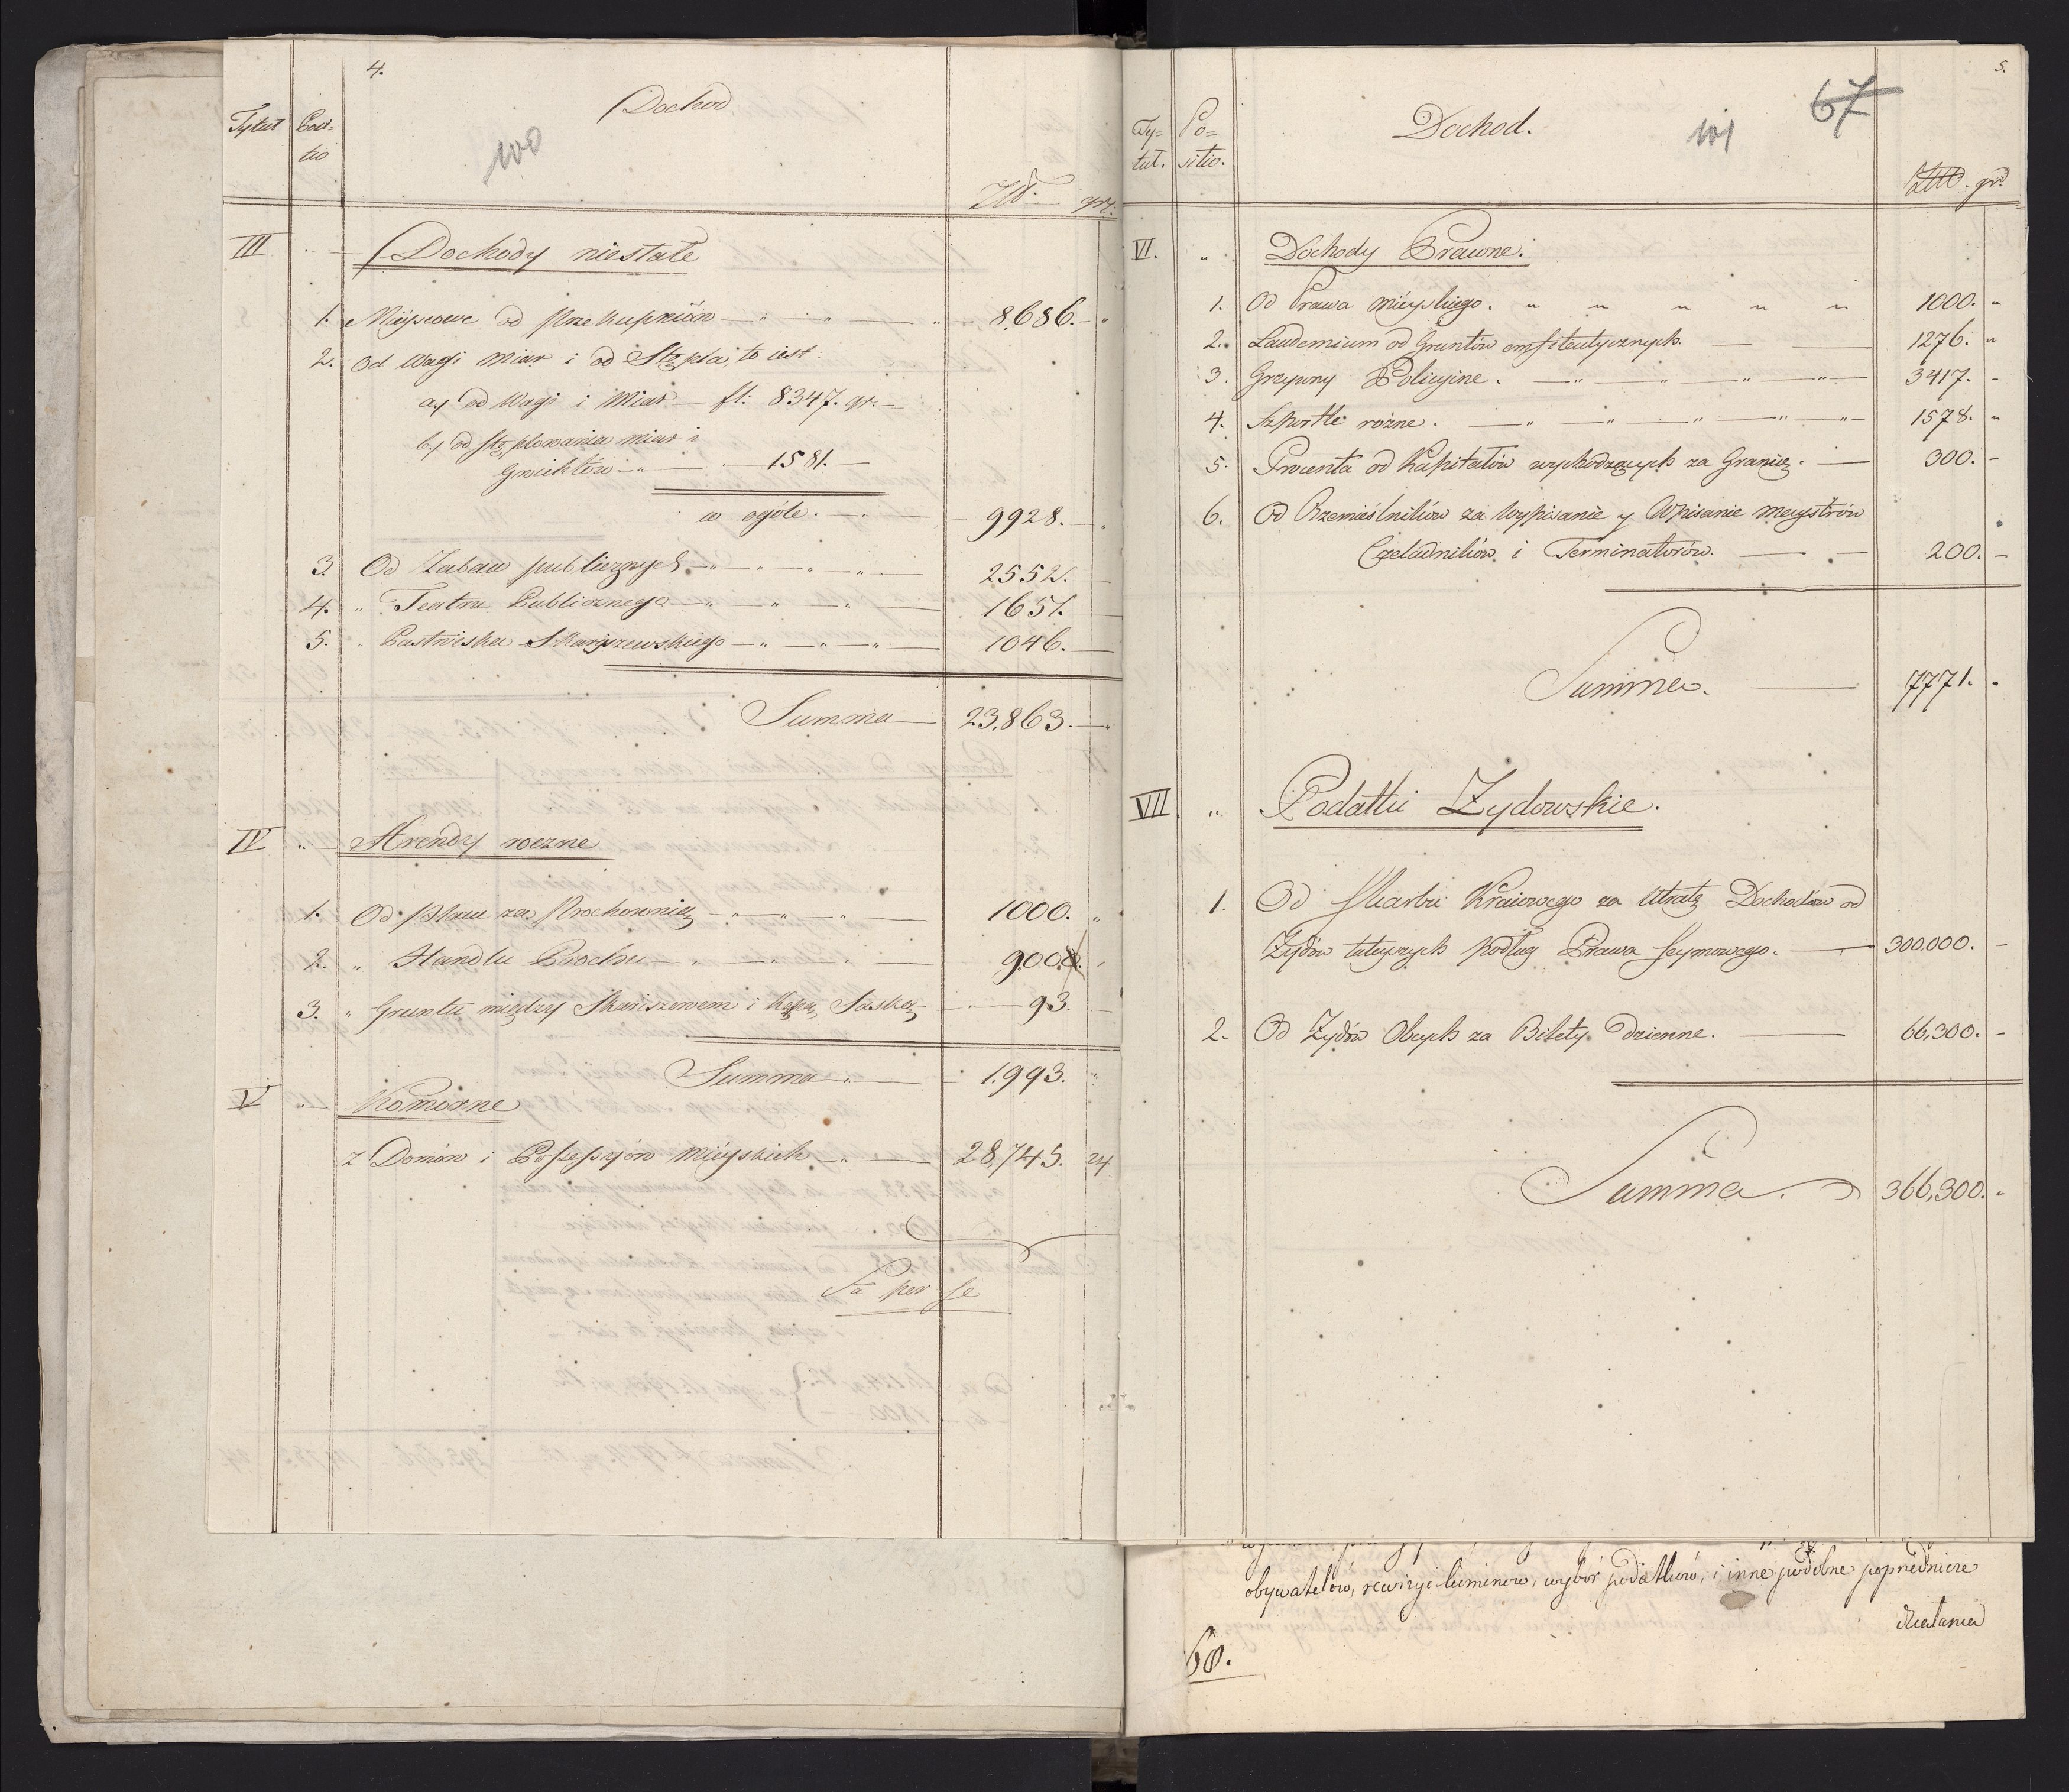 4.
Tytuł Posi-
tio
Dochod
100
Złł. gr.
III Dochody niestałe
1. Mieyscowe od Przekupniów 8,686.
2. Od Wagi Miar i od Stępla, to iest:
a) od Wagi i Miar fl: 8347. gr. —
b) od stęplowania miar i
Gwichtów 1581. —
w ogóle. 9928.
3. Od Zabaw publicznych 2552.
4. " Teatru Publicznego 1651.
5. " Pastwiska Skaryszewskiego 1046.
Summa 23,863.
IV " Arendy roczne
1. Od Placu za Prochownią 1000.
2. " Handlu Prochu 900.
3. " Gruntu między Skariszewem i Kępą Saską 93.
Summa 1,993.
V Komorne
z Domów i Possessyów Mieyskich 28,745. 24
Sa per se
5.
67
101
Ty= Po=
tuł. sitio.
Dochod.
Złł. gr.
VI. " Dochody Prawne.
1. Od Prawa mieyskiego. " " " " " 1000. "
2. Laudemium od Gruntów emfiteutycznych. 1276. "
3. Grzywny Policyine. 3417. -
4. Szportle rózne. 1578. "
5. Procenta od Kapitałów wychodzących za Granicę. 300. -
6. Od Rzemieślników za Wypisanie y Wpisanie Meystrów
Czeladników i Terminatorów. 200. -
Summa. 7771. "
VII. " Podatki Zydowskie.
1. Od Skarbu Kraiowego za Utratę Dochodów od
Zydów tuteyszych podług Prawa Seymowego. 300,000. -
2. Od Zydów Obcych za Bilety dzienne. 66,300. -
Summa. 366,300. "
obywatelów, rewizye kominów, wybór podatków, i inne podobne poprzednicze
działania
68.